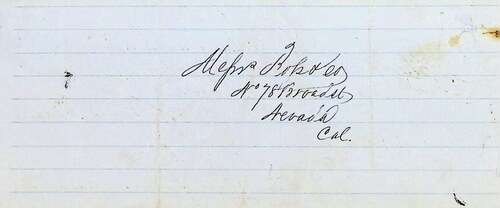 Messrs Fok & Co
No 78 Broad St
Nevada
Cal.